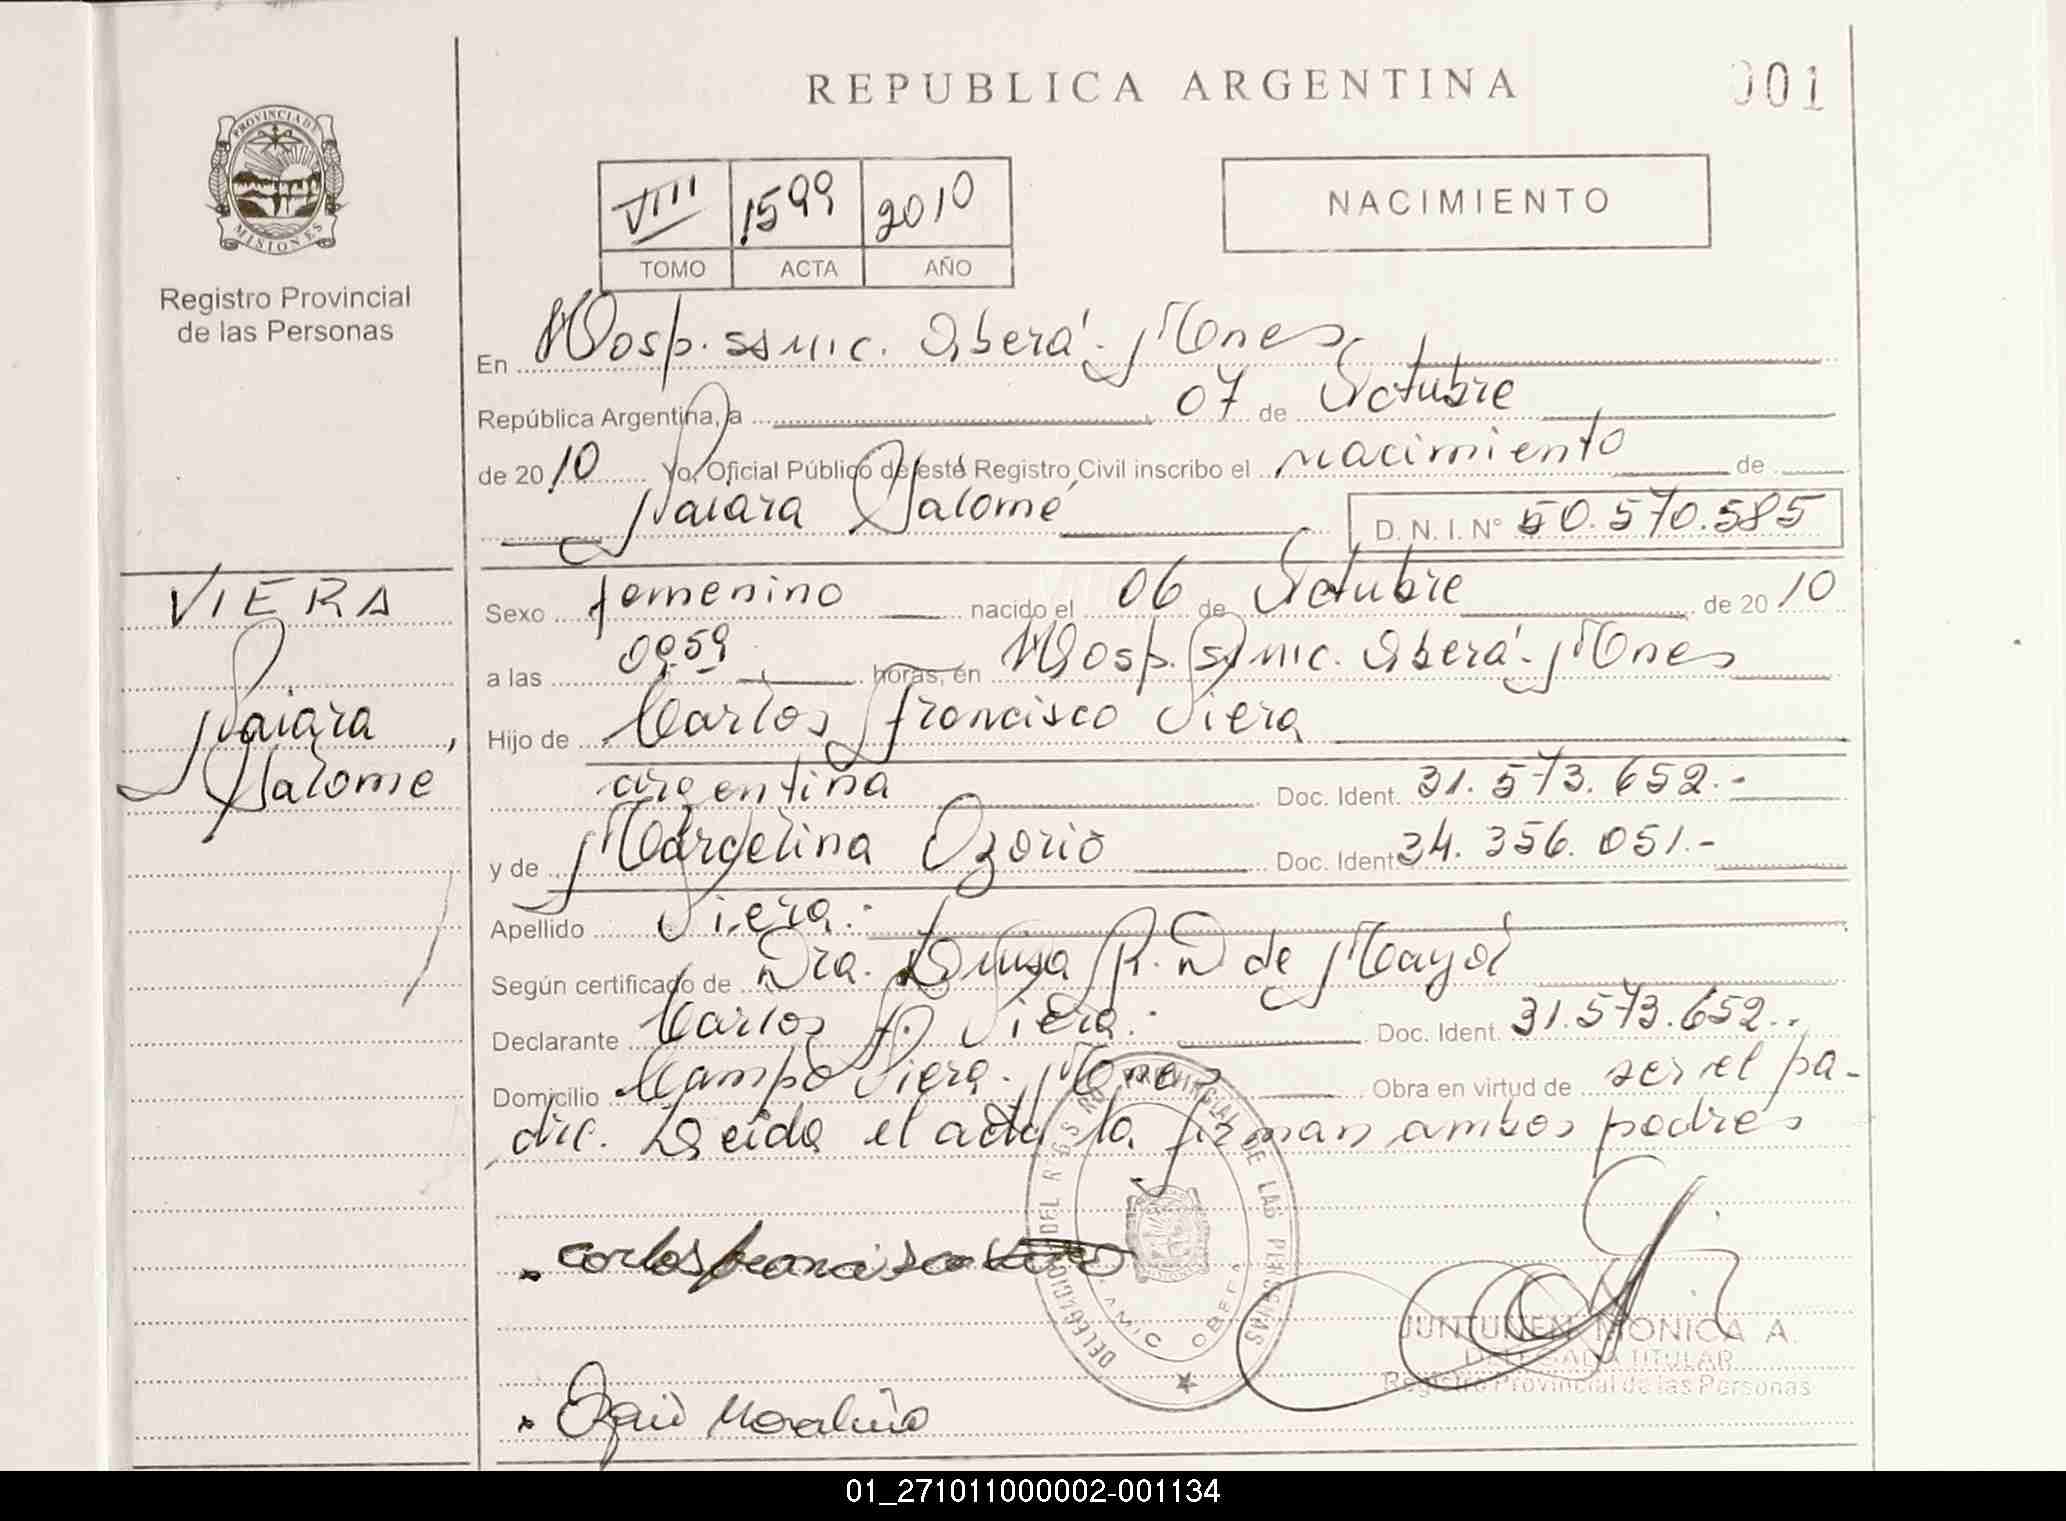 REPUBLICA ARGENTINA
001
PROVINCIA DE
MISIONES
Registro Provincial
de las Personas
VIII 1599 2010
TOMO ACTA AÑO
NACIMIENTO
En Hosp. ssmic. Oberá - Mones
República Argentina, a 07 de Octubre
de 2010 Yo, Oficial Público de este Registro Civil inscribo el nacimiento de
Naiara Salomé D. N. I. N° 50.570.585
VIERA
Naiara
Salomé
Sexo femenino nacido el 06 de Octubre de 2010
a las 09.59 horas, en Hosp. Ssmic. Oberá - Mones
Hijo de Carlos Francisco Viera
argentina Doc. Ident. 31.573.652.-
y de Margelina Ozorio Doc. Ident. 34.356.051.-
Apellido Viera.-
Según certificado de Dra. Luisa R. D de Mayol
Declarante Carlos F. Viera.- Doc. Ident. 31.573.652.-
Domicilio Campo Viera - Mones Obra en virtud de ser el pa-
dre. Leida el acta la firman ambos padres
carlos francisco
DELEGACION DEL PROVINCIAL DE LAS PERSONAS
OBERA
JUNTUNEN MONICA A.
DELEGADA TITULAR
Registro Provincial de las Personas
01_271011000002-001134